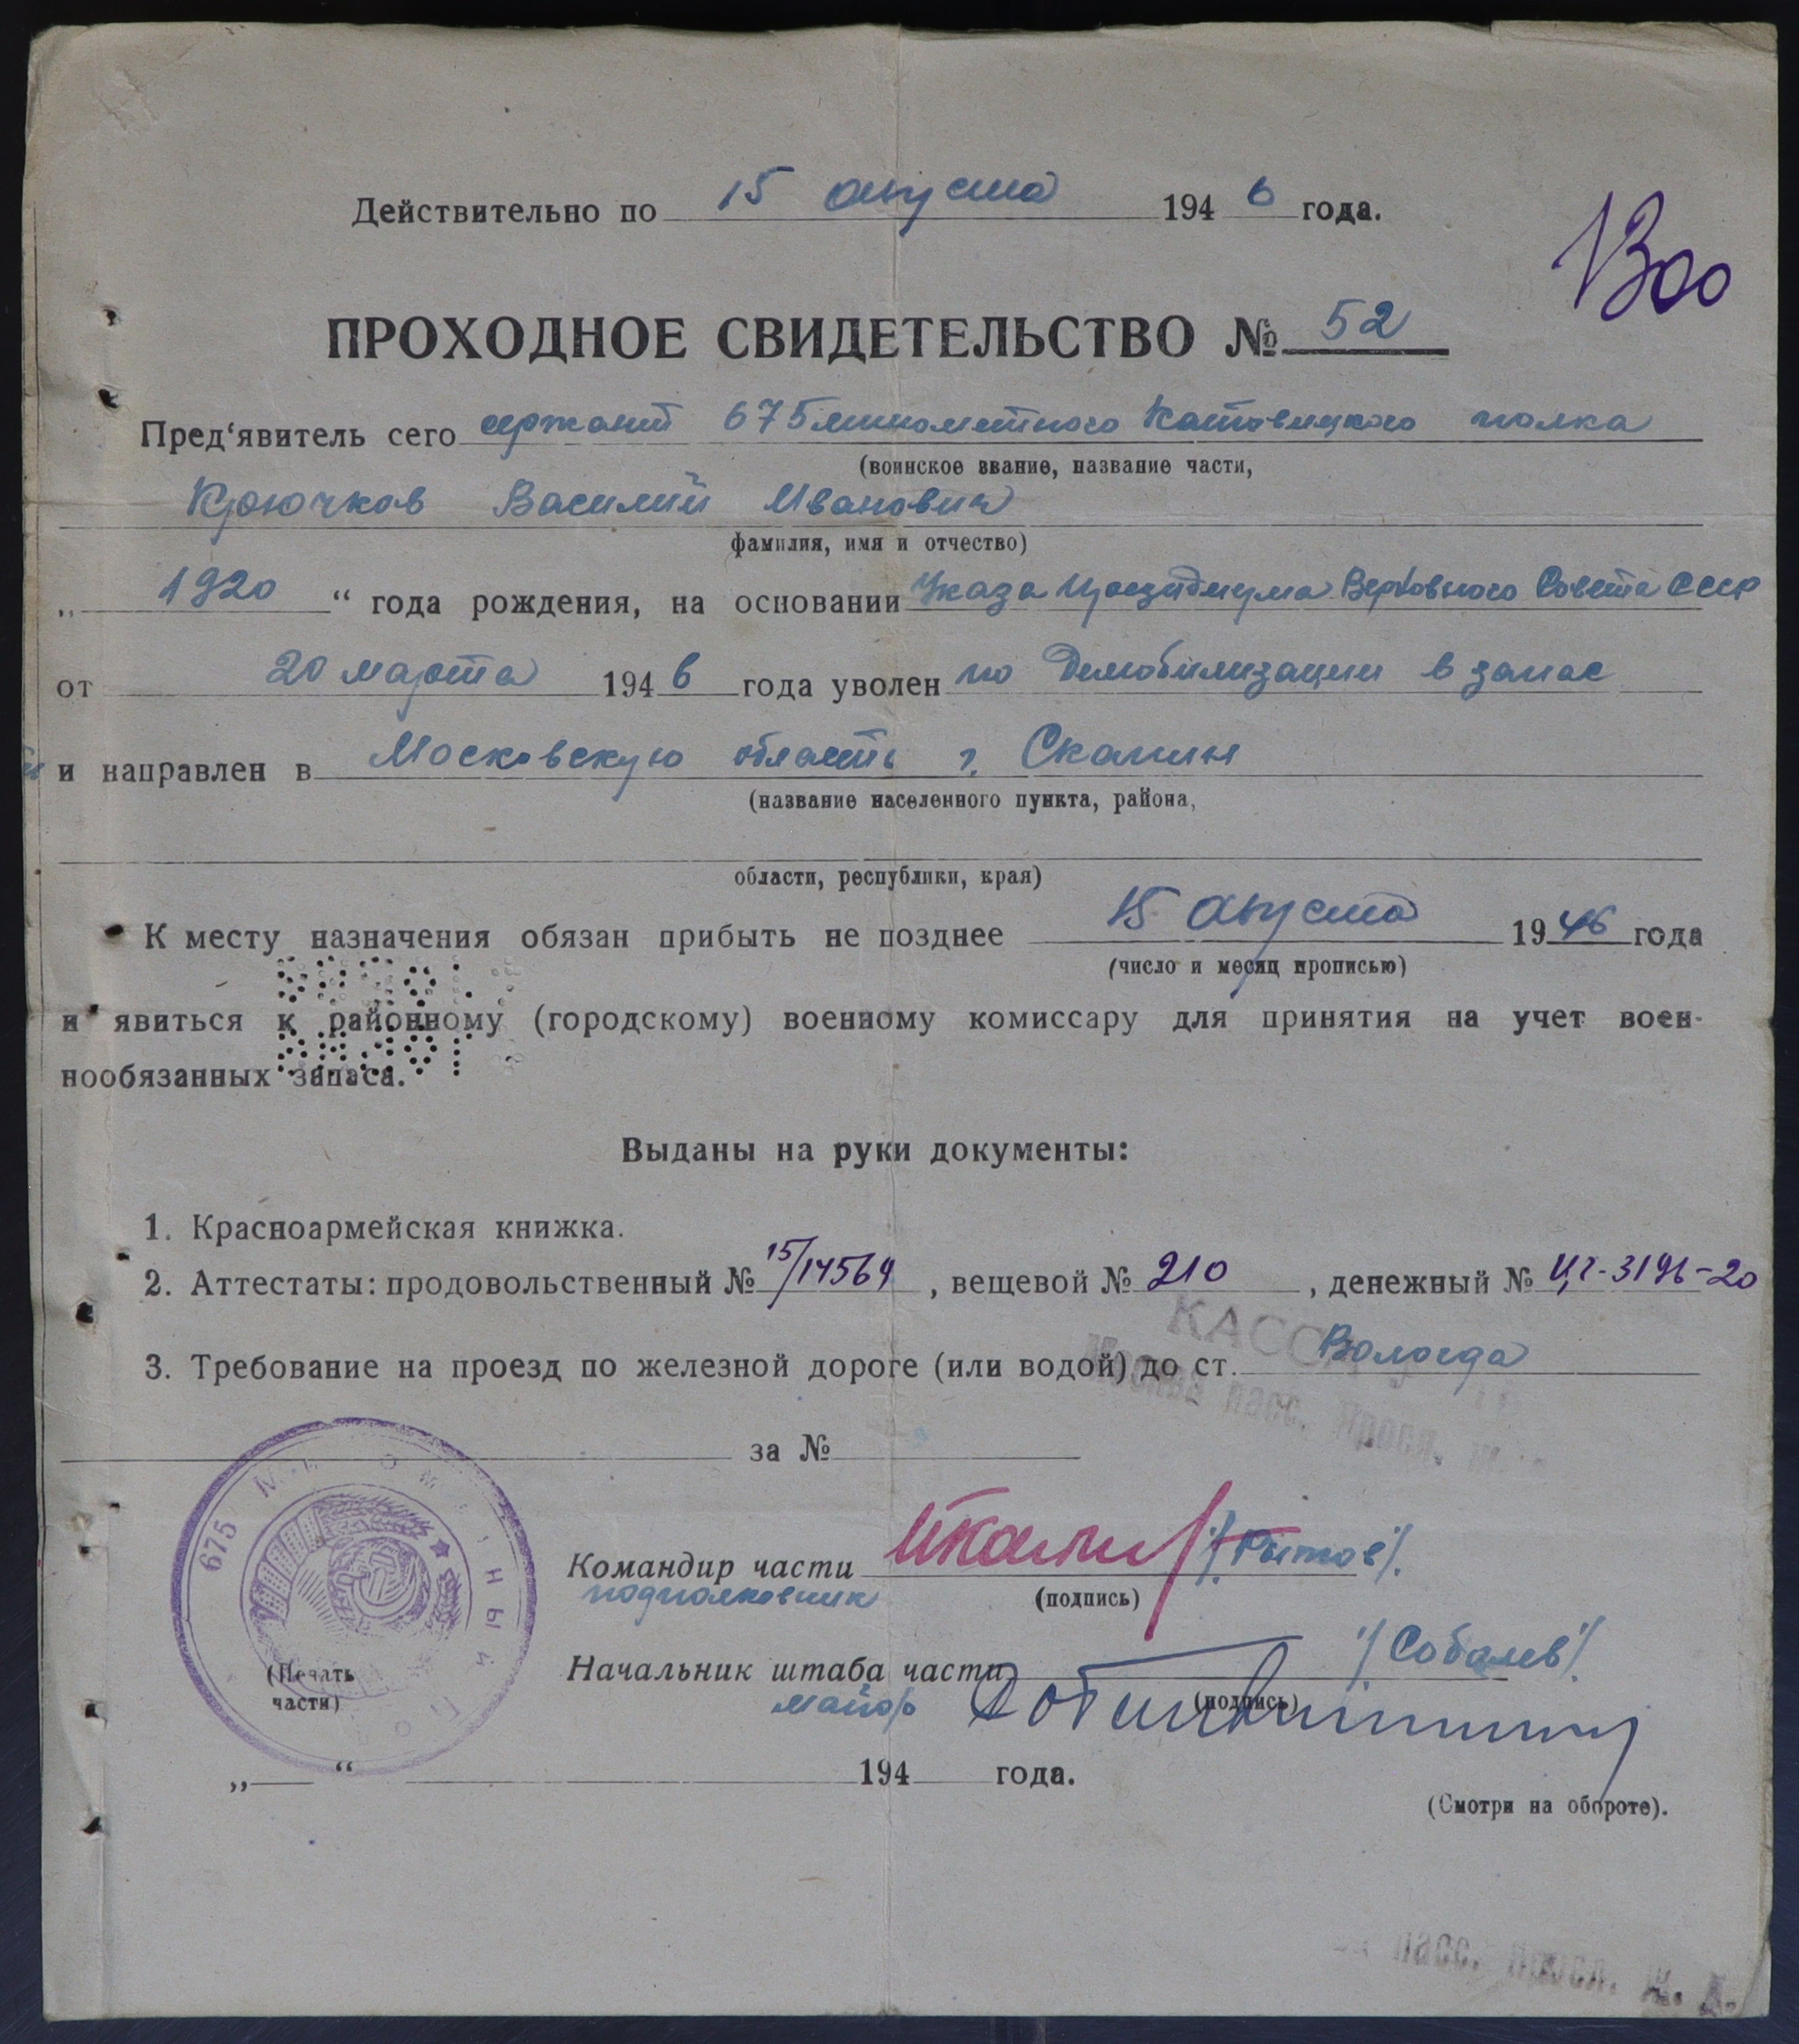 Действительно по 15 августа 1946 года.
1300
ПРОХОДНОЕ СВИДЕТЕЛЬСТВО № 52
Пред‘явитель сего сержант 675 минометного Катовицкого полка
(воинское звание, название части,
Крючков Василий Иванович
фамилия, имя и отчество)
„ 1920 “ года рождения, на основании Указа Президиума Верховного Совета СССР
от 20 марта 1946 года уволен по демобилизации в запас
и направлен в Московскую область г. Скопин
(название населенного пункта, района,
области, республики, края)
К месту назначения обязан прибыть не позднее 15 августа 1946 года
(число и месяц прописью)
и явиться к районному (городскому) военному комиссару для принятия на учет воен-
нообязанных запаса.
Выданы на руки документы:
1. Красноармейская книжка.
2. Аттестаты: продовольственный № 15/14569, вещевой № 210, денежный № ЦГ-3196-20
КАССА
3. Требование на проезд по железной дороге (или водой) до ст. Вологда
Москва пасс. Яросл.
за №
675 МИНОМЕТНЫЙ ПОЛК
Командир части /Рытов/.
подполковник (подпись)
Начальник штаба части /Соболев/.
(Печать
майор (подпись)
части)
„ “ 194 года.
(Смотри на обороте).
пасс. Яросл. ж. д.